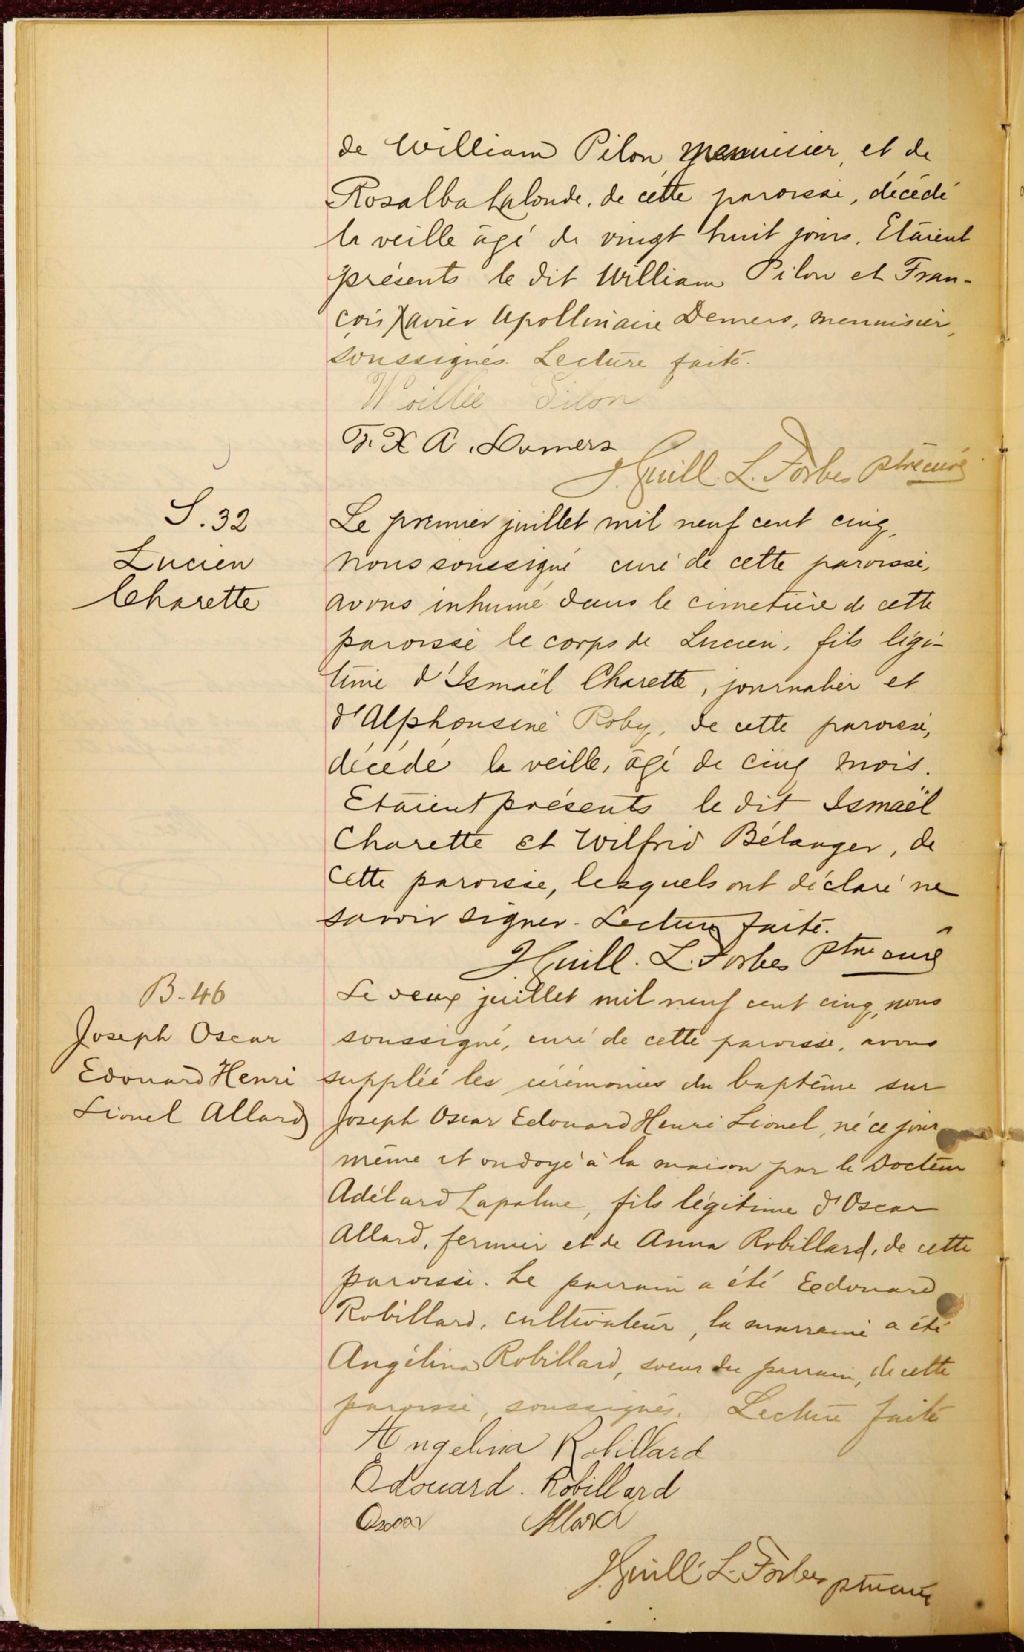 de William Pilon menuisier, et de
Rosalba Lalonde, de cette paroisse, décédé
la veille âgé de vingt huit jours. Etaient
présents le dit William Pilon et Fran-
çois Xavier Apollinaire Demers, menuisier,
soussignés. Lecture faite.
Woillie Pilon
F. X A. Demers
J. Guill. L. Forbes ptre curé
S. 32
Lucien
Charette
Le premier juillet mil neuf cent cinq,
nous soussigné curé de cette paroisse,
avons inhumé dans le cimetière de cette
paroisse le corps de Lucien, fils légi-
time d'Ismaël Charette, journalier et
d'Alphonsine Roby, de cette paroisse,
décédé la veille, âgé de cinq mois.
Etaient présents le dit Ismaël
Charette et Wilfrid Bélanger, de
cette paroisse, lesquels ont déclaré ne
savoir signer. Lecture faite.
J Guill. L. Forbes ptre curé
B-46
Joseph Oscar
Edouard Henri
Lionel Allard
Le deux juillet mil neuf cent cinq, nous
soussigné, curé de cette paroisse, avons
suppléé les cérémonies du baptême sur
Joseph Oscar Edouard Henri Lionel, né ce jour
même et ondoyé à la maison par le Docteur
Adélard Lapalme, fils légitime d'Oscar
Allard, fermier et de Anna Robillard, de cette
paroisse. Le parrain a été Edouard
Robillard, cultivateur, la marraine a été
Angélina Robillard, soeur du parrain, de cette
paroisse, soussignés. Lecture faite
Angelina Robillard
Edouard. Robillard
Oscar Allard
J. Guill. L. Forbes ptre curé